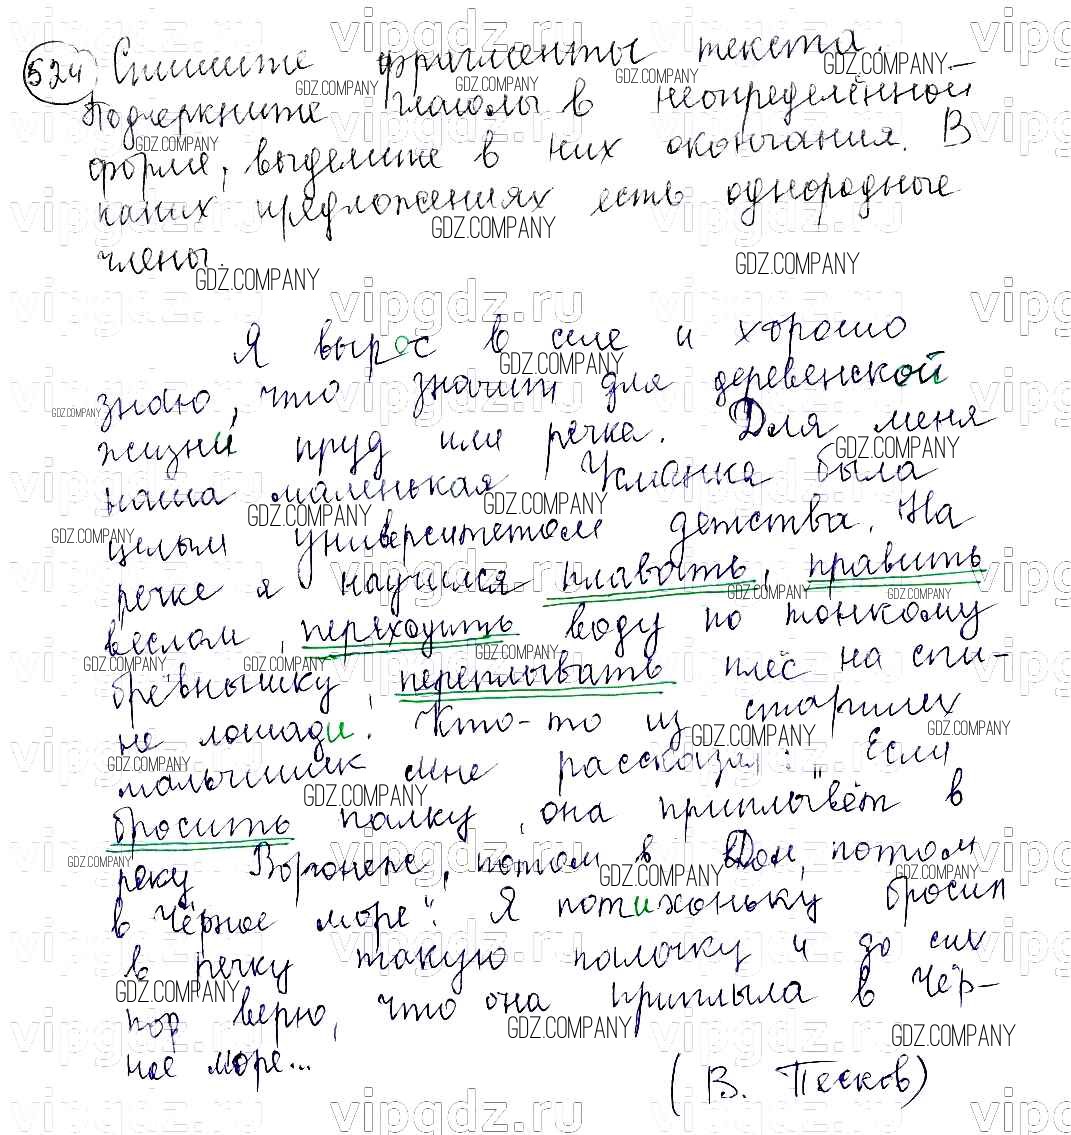 524 Спишите фрагменты текста.
Подчеркните глаголы в неопределённой
форме, выделите в них окончания. В
каких предложениях есть однородные
члены.
Я вырос в селе и хорошо
знаю, что значит для деревенской
жизни пруд или речка. Для меня
наша маленькая Усманка была
целым университетом детства. На
речке я научился плавать, править
веслом, переходить воду по тонкому
брёвнышку, переплывать плёс на спи-
не лошади. Кто-то из старших
мальчишек мне рассказал: "Если
бросить палку, она приплывёт в
реку Воронеж, потом в Дон, потом
в Чёрное море". Я потихоньку бросил
в речку такую палочку и до сих
пор верю, что она приплыла в Чёр-
ное море...
(В. Песков)
vipgdz.ru
GDZ.COMPANY